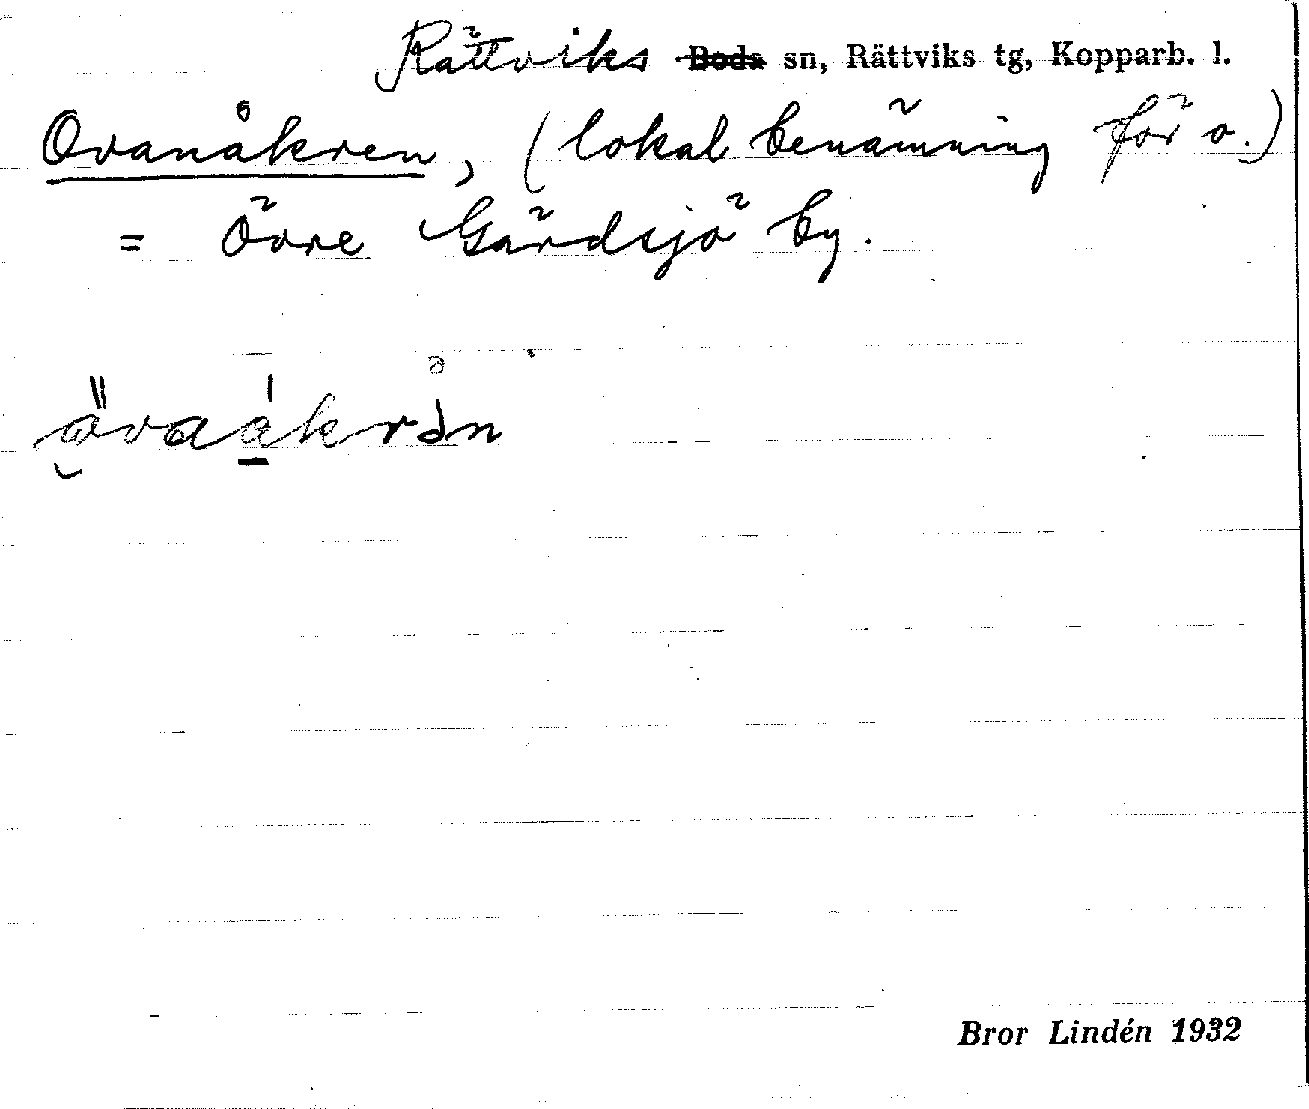 Rättviks ~~Boda~~ sn, Rättviks tg, Kopparb. l.
Ovanåkren, (lokal benämning för o.)
= Övre Gärdsjö by.
Bror Lindén 1932